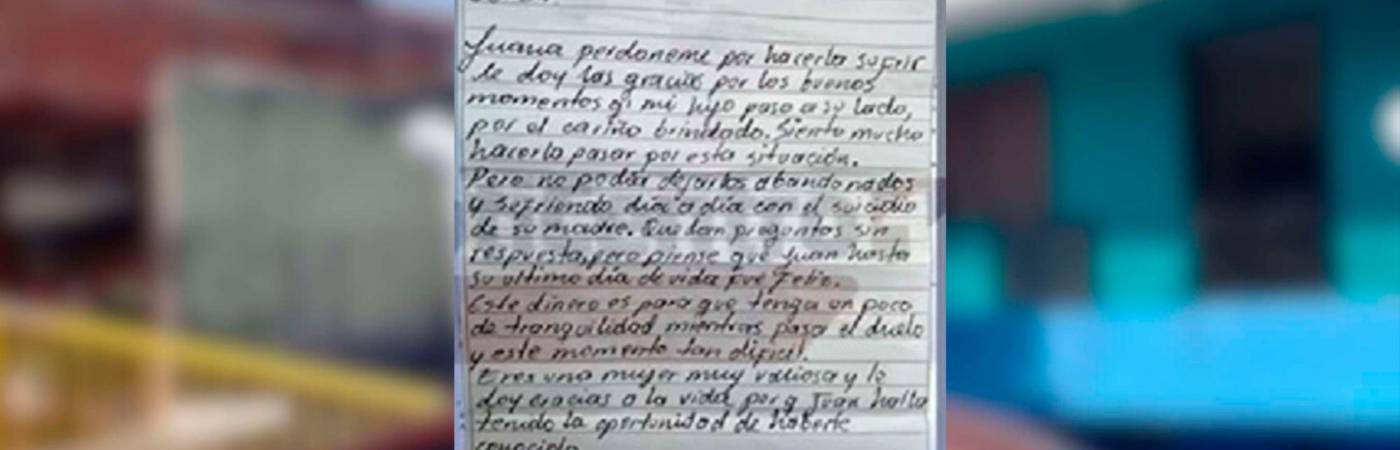 Juana perdoneme por hacerla sufrir
le doy las gracias por los buenos
momentos q' mi hijo paso a su lado,
por el cariño brindado. Siento mucho
hacerla pasar por esta situación.
Pero no podía dejarlos abandonados
y sufriendo día a día con el suicidio
de su madre. Quedan preguntas sin
respuesta, pero piense que Juan hasta
su ultimo día de vida fue Feliz.
Este dinero es para que tenga un poco
de tranquilidad mientras pasa el duelo
y este momento tan dificil.
Eres una mujer muy valiosa y le
doy gracias a la vida porq Juan halla
tenido la oportunidad de haberte
conocido